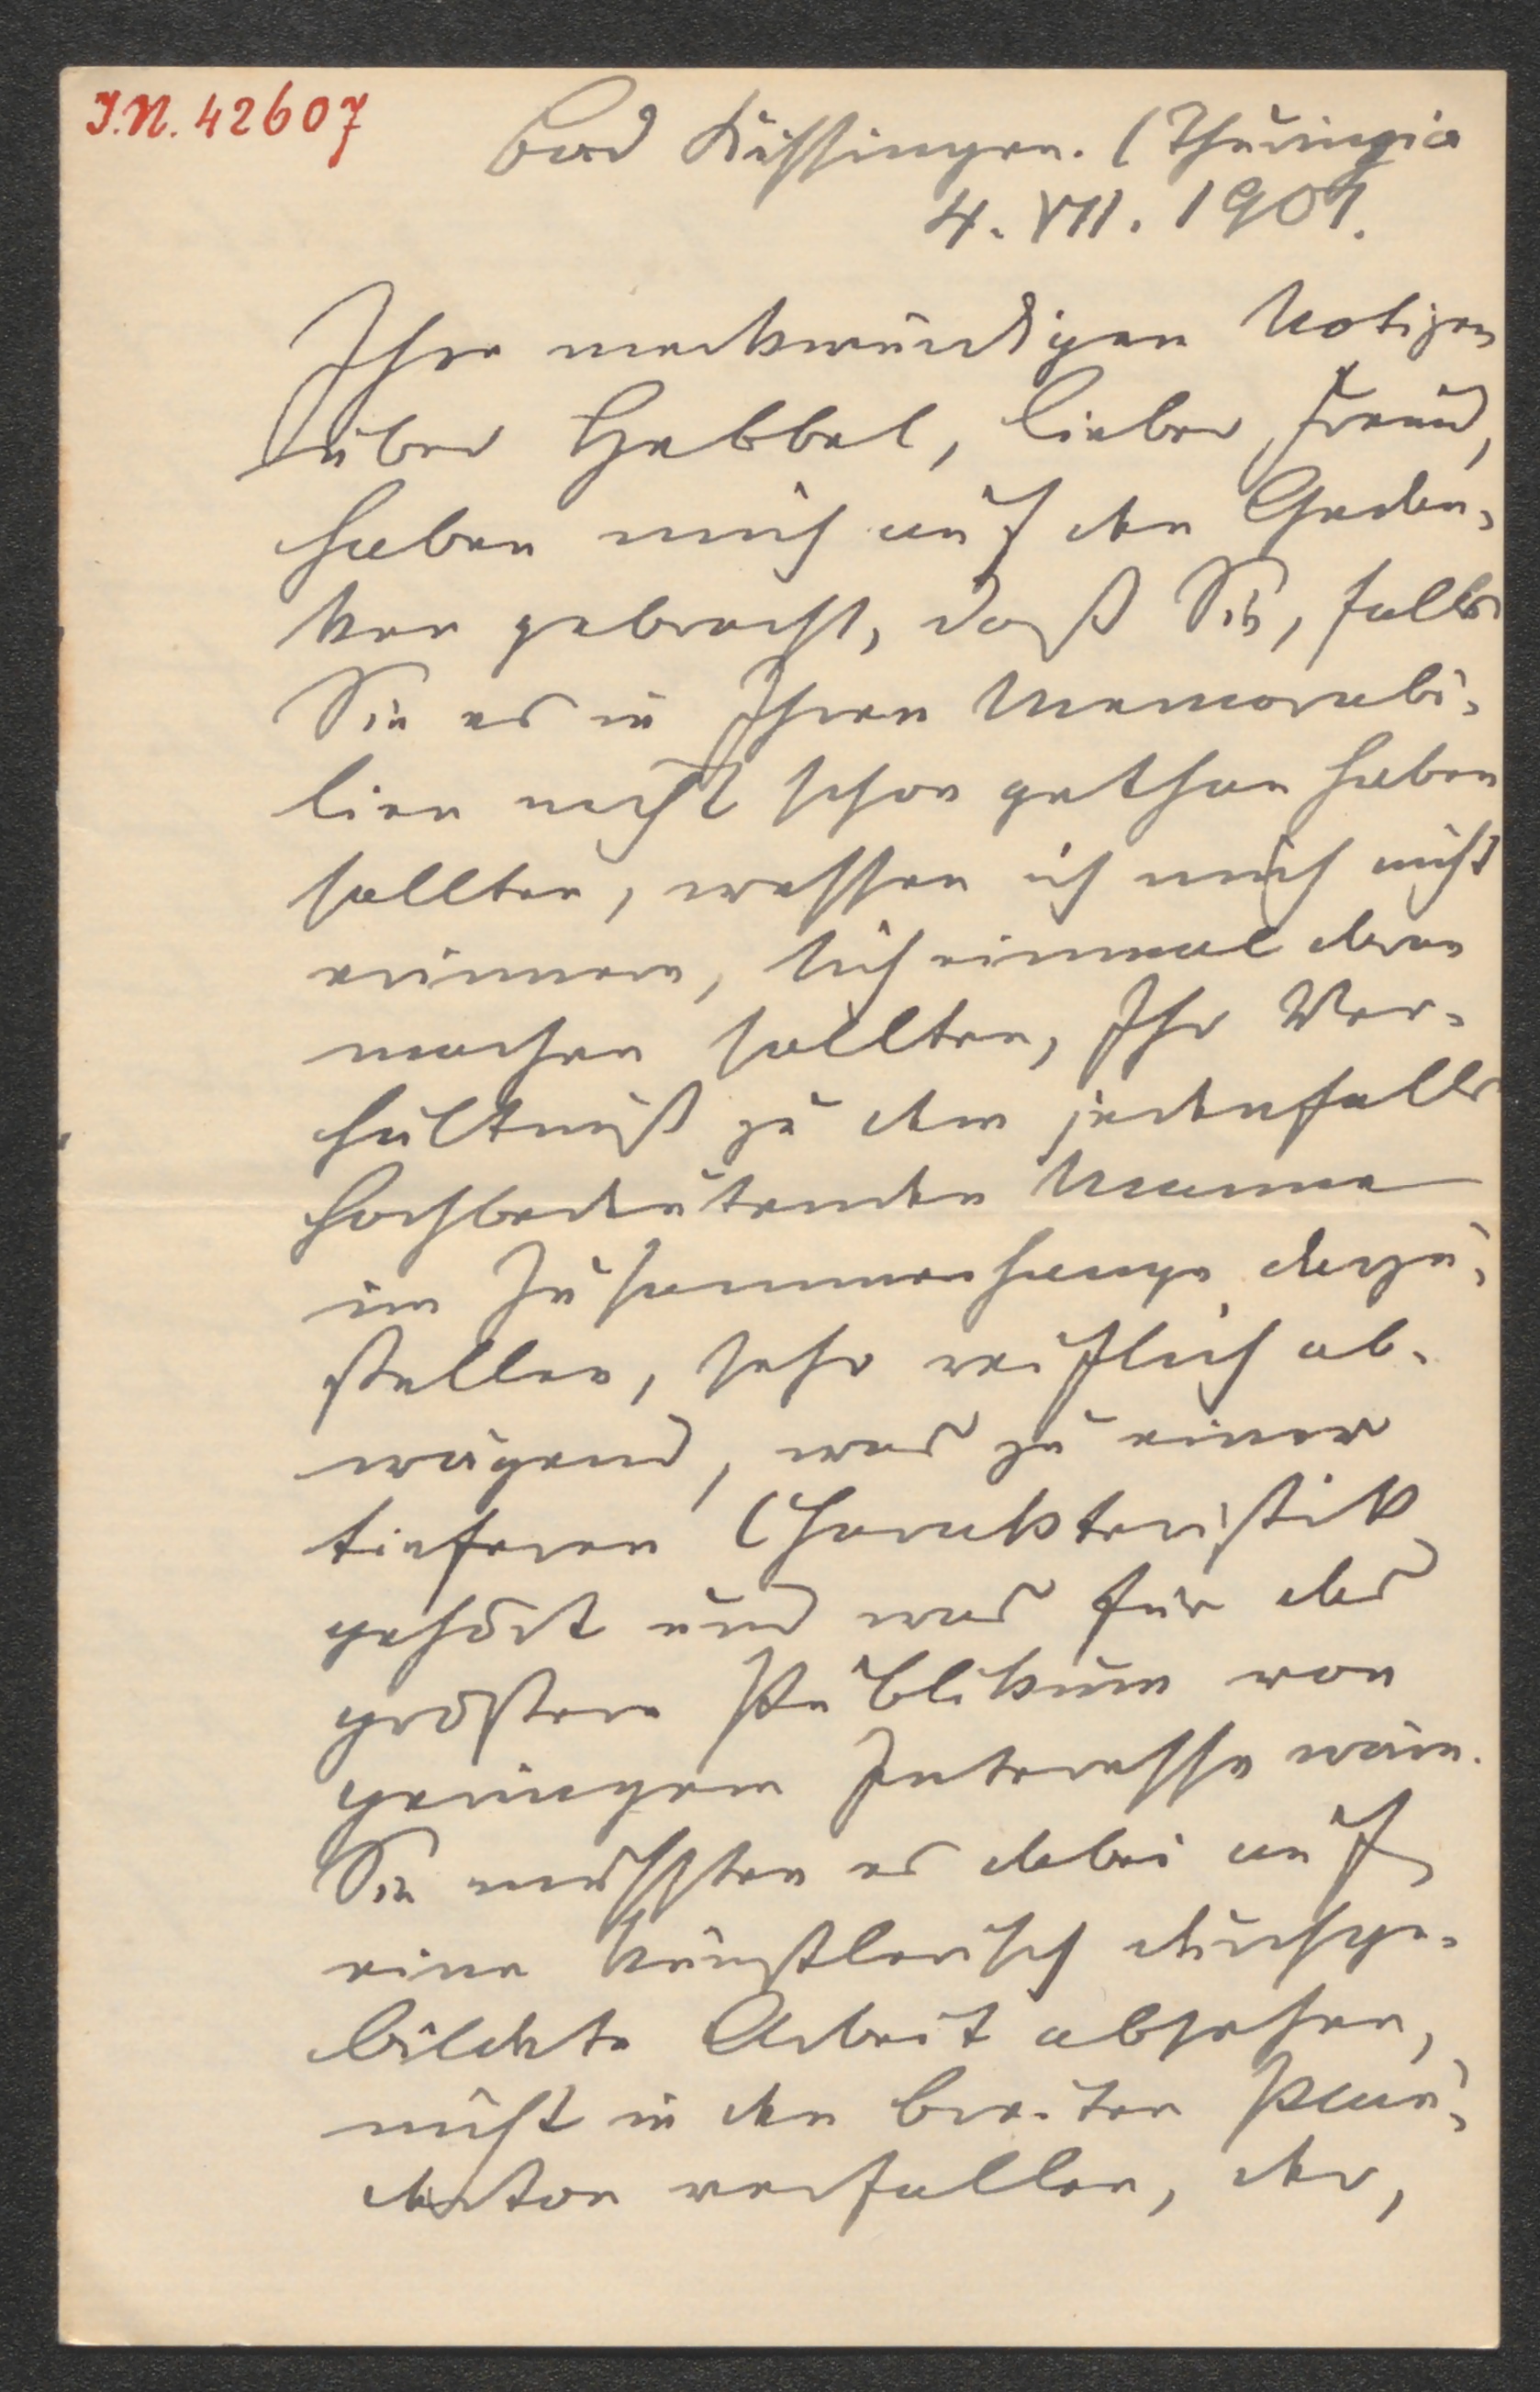 J.N. 42607
Bad Kissingen. (Thüringia
4. VII. 1901.
Ihre merkwürdigen Notizen
über Hebbel, lieber Freund,
haben mich auf den Gedan-
ken gebracht, daß Sie, falls
Sie es in Ihren Memorabi-
lien nicht schon gethan haben
sollten, wessen ich mich nicht
erinnere, sich einmal daran
machen sollten, Ihr Ver-
hältniß zu dem jedenfalls
hochbedeutenden Manne
im Zusammenhange darzu-
stellen, sehr reiflich ab-
wägend, was zu einer
tieferen Charakteristik
gehört und was für das
größere Publikum von
geringem Interesse wäre.
Sie müssten es dabei auf
eine künstlerisch durchge-
bildete Arbeit absehen,
nicht in den breiten Plau-
derton verfallen, der,